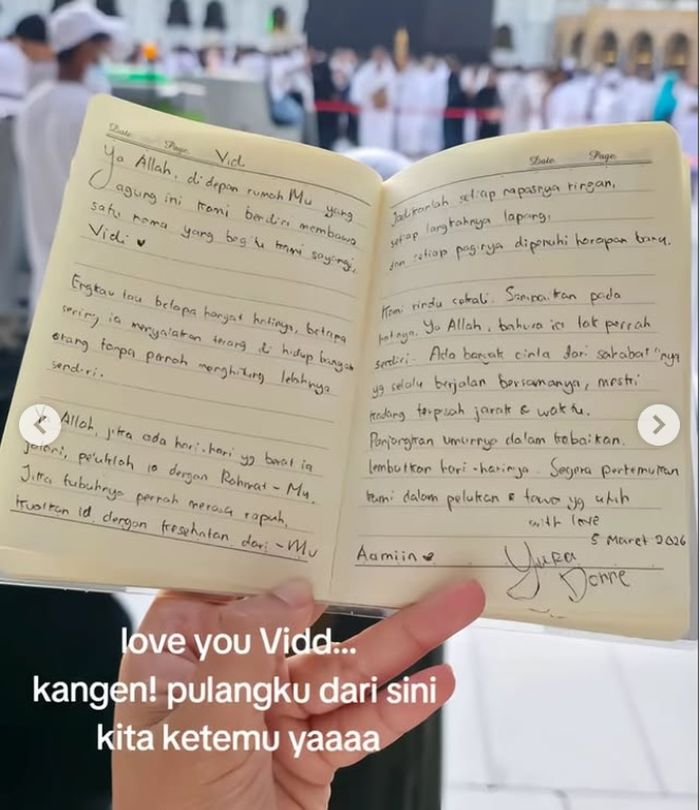 Date Page Vid
Ya Allah, di depan rumah Mu yang
agung ini kami berdiri membawa
satu nama yang begitu kami sayangi.
Vidi ♥
Engkau tau betapa hangat hatinya, betapa
sering ia menyalakan terang di hidup banyak
orang tanpa pernah menghitung lelahnya
sendiri.
Ya Allah, jika ada hari-hari yg berat ia
jalani, peluklah ia dengan Rahmat-Mu.
Jika tubuhnya pernah merasa rapuh,
kuatkan ia dengan kesehatan dari-Mu
Date Page
Jadikanlah setiap napasnya ringan,
setiap langkahnya lapang,
dan setiap paginya dipenuhi harapan baru.
Kami rindu sekali. Sampaikan pada
hatinya, Ya Allah, bahwa ia tak pernah
sendiri. Ada banyak cinta dari sahabat"nya
yg selalu berjalan bersamanya, meski
kadang terpisah jarak & waktu.
Panjangkan umurnya dalam kebaikan.
lembutkan hari-harinya. Segera pertemukan
kami dalam pelukan & tawa yg utuh
with love
5 Maret 2026
Aamiin ♥
Yuka
love you Vidd...
kangen! pulangku dari sini
kita ketemu yaaaa